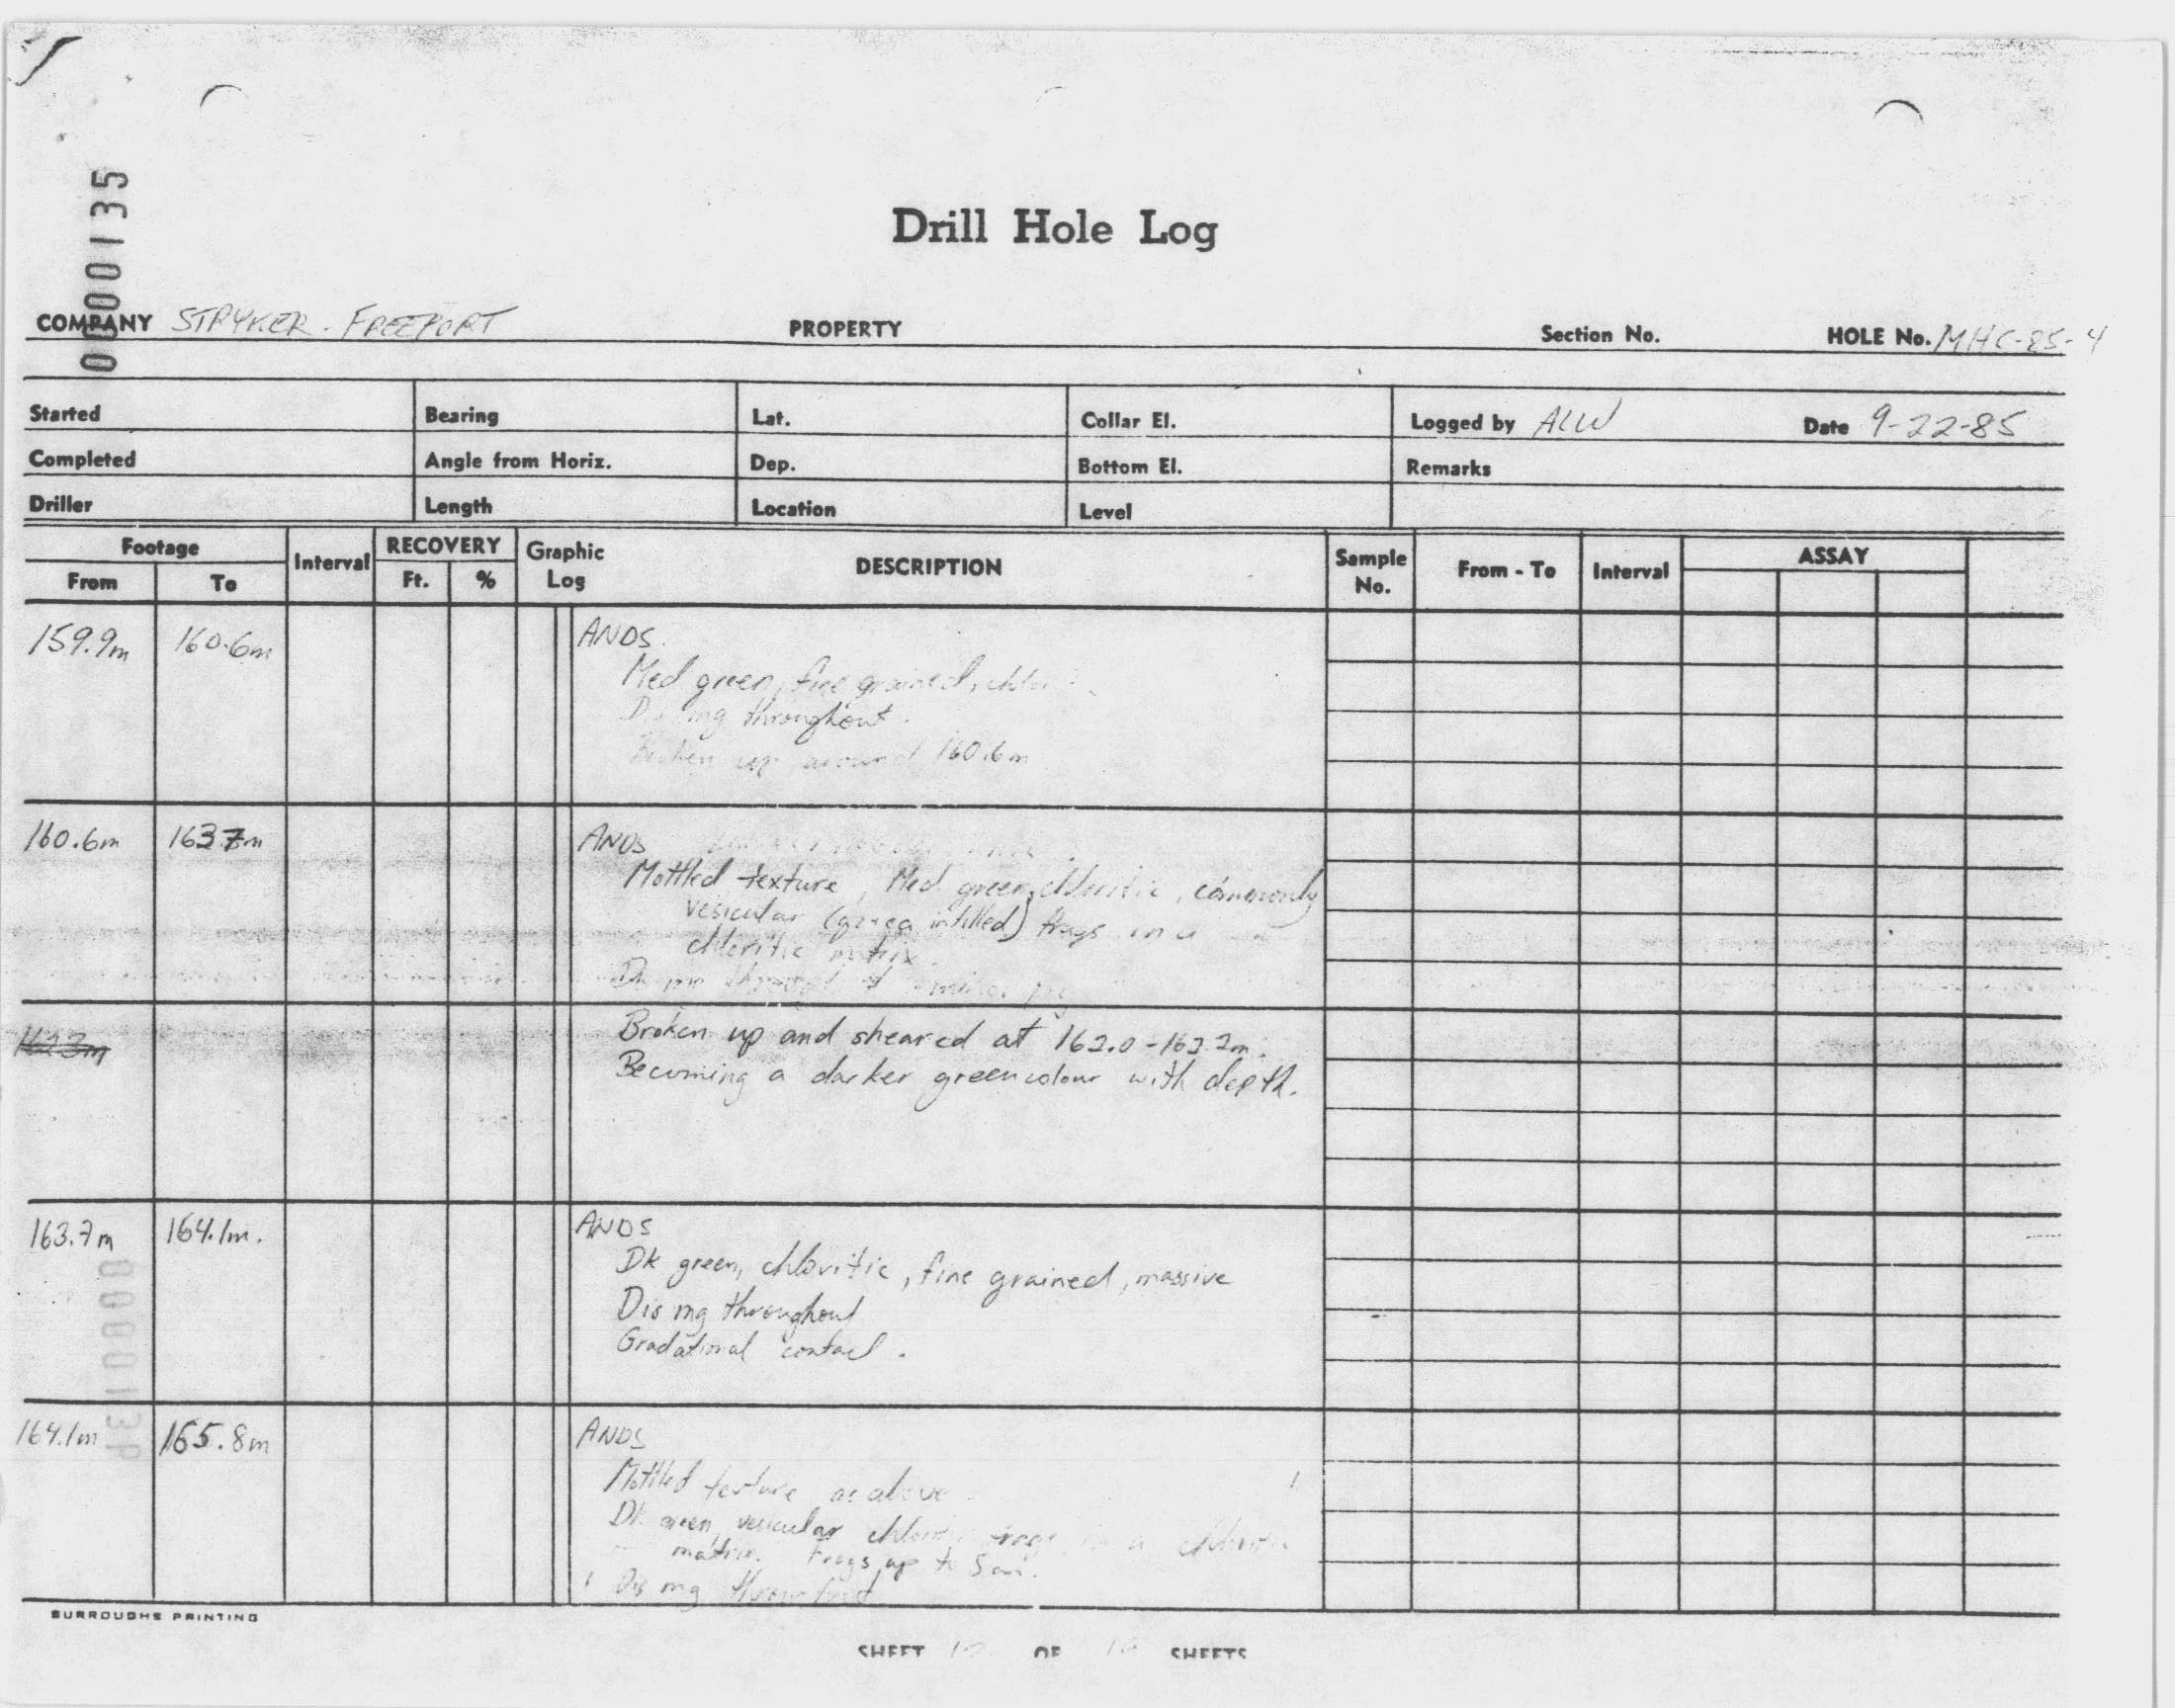 0000135
Drill Hole Log
COMPANY STRYKER - FREEPORT PROPERTY Section No. HOLE No. MHC-85-4
Started Bearing Lat. Collar El. Logged by ALW Date 9-22-85
Completed Angle from Horiz. Dep. Bottom El. Remarks
Driller Length Location Level
Footage Interval RECOVERY Graphic Log DESCRIPTION Sample No. From - To Interval ASSAY
From To Ft. %
159.9m 160.6m ANDS.
Med green, fine grained,
mg throughout.
Broken up around 160.6m
160.6m 163.7m ANDS
Mottled texture, Med green, chloritic, commonly
vesicular (qz+ca infilled) frags in a
chloritic matrix.
Broken up and sheared at 162.0-162.2m.
Becoming a darker green colour with depth.
163.7m 164.1m. ANDS
Dk green, chloritic, fine grained, massive
Dis mg throughout
Gradational contact.
164.1m 165.8m ANDS
Mottled texture as above
Dk green, vesicular frags in a
matrix. Frags up to 5cm.
Dis mg throughout
BURROUGHS PRINTING
SHEET OF SHEETS